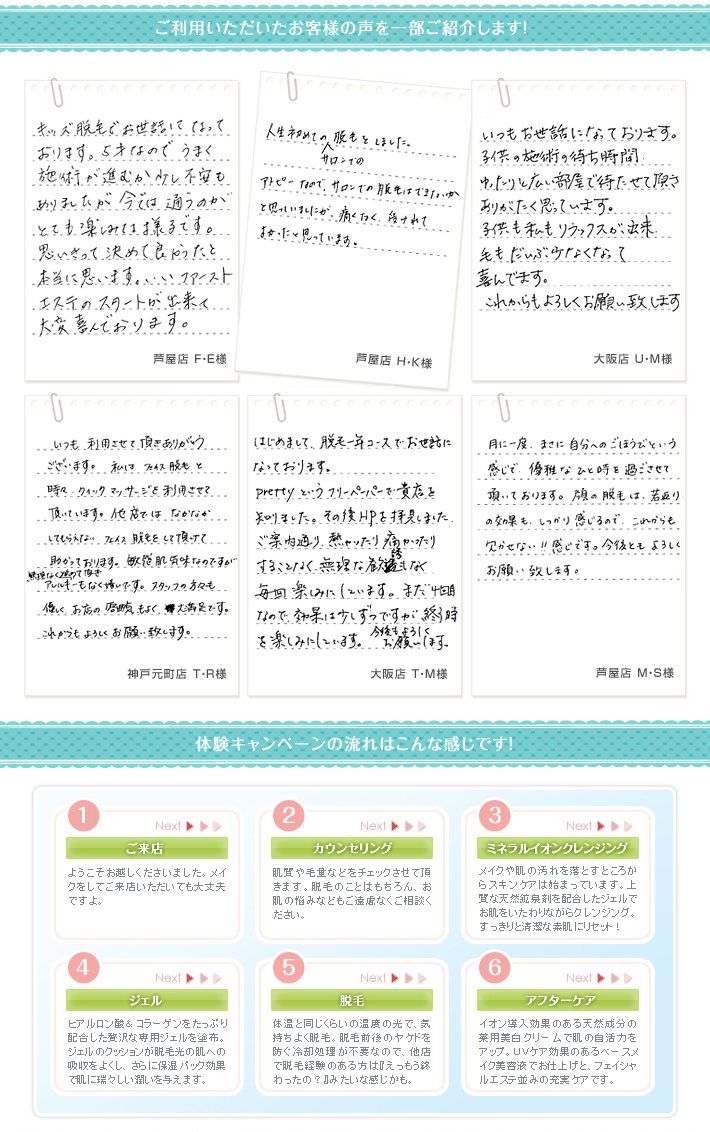 ご利用いただいたお客様の声を一部ご紹介します!
キッズ脱毛でお世話になって
おります。5才なのでうまく
施術が進むか少し不安も
ありましたが今では通うのが
とても楽しみな様子です。
思いきって決めて良かったと
本当に思います。いいファースト
エステのスタートが出来て
大変喜んでおります。
芦屋店 F・E様
人生初めての脱毛をしました。
アトピーなので、サロンでの脱毛はできないか
と思っていましたが、痛くなく、受けれて
よかったと思っています。
芦屋店 H・K様
いつもお世話になっております。
子供の施術の待ち時間
ゆったりと広い部屋で待たせて頂き
ありがたく思っています。
子供も私もリラックスが出来
毛もだいぶ少なくなって
喜んでます。
これからもよろしくお願い致します
大阪店 U・M様
いつも利用させて頂きありがとう
ございます。私はフェイス脱毛と
時々クイックマッサージを利用させて
頂いています。他店ではなかなか
してもらえない、フェイス脱毛をして頂けて
助かっております。敏感肌気味なのですが
アレルギーもなく嬉しいです。スタッフの方々も
優しく、お店の雰囲気もよく、大満足です。
これからもよろしくお願い致します。
神戸元町店 T・R様
はじめまして、脱毛一年コースでお世話に
なっております。
prettyというフリーペーパーで貴店を
知りました。その後HPを拝見しました。
ご案内通り、熱かったり痛かったり
することなく、無理な勧誘もなく
毎回楽しみにしています。まだ4回目
なので効果は少しずつですが、終う時
を楽しみにしています。今後もよろしく
お願いします。
大阪店 T・M様
月に一度、まさに自分へのごほうびという
感じで、優雅なひと時を過ごさせて
頂いております。顔の脱毛は、若返り
の効果も、しっかり感じるので、これからも
欠かせない!!感じです。今後ともよろしく
お願い致します。
芦屋店 M・S様
体験キャンペーンの流れはこんな感じです!
1
Next
ご来店
ようこそお越しくださいました。メイ
クをしてご来店いただいても大丈夫
ですよ。
2
Next
カウンセリング
肌質や毛量などをチェックさせて頂
きます。脱毛のことはもちろん、お
肌の悩みなどもご遠慮なくご相談く
ださい。
3
Next
ミネラルイオンクレンジング
メイクや肌の汚れを落とすところか
らスキンケアは始まっています。上
質な天然鉱泉剤を配合したジェルで
お肌をいたわりながらクレンジング。
すっきりと清潔な素肌にリセット!
4
Next
ジェル
ヒアルロン酸&コラーゲンをたっぷり
配合した贅沢な専用ジェルを塗布。
ジェルのクッションが脱毛光の肌への
吸収をよくし、さらに保湿パック効果
で肌に瑞々しい潤いを与えます。
5
Next
脱毛
体温と同じくらいの温度の光で、気
持ちよく脱毛。脱毛前後のヤケドを
防ぐ冷却処理が不要なので、他店
で脱毛経験のある方は『えっもう終
わったの?』みたいな感じかも。
6
Next
アフターケア
イオン導入効果のある天然成分の
薬用美白クリームで肌の自活力を
アップ。UVケア効果のあるベースメ
イク美容液でお仕上げと、フェイシャ
ルエステ並みの充実ケアです。